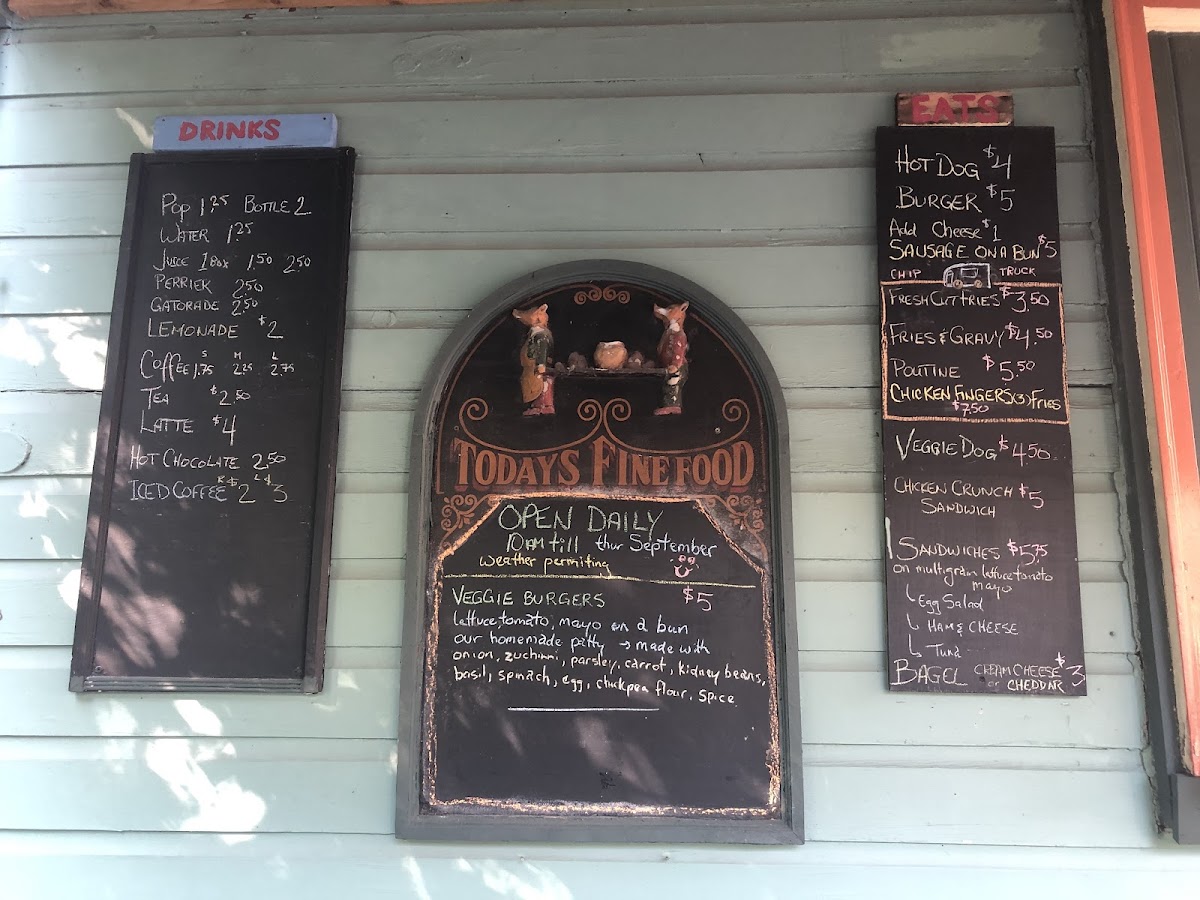 DRINKS
POP 1.25 BOTTLE 2
WATER 1.25
JUICE 1 BOX 1.50 2.50
PERRIER 2.50
GATORADE 2.50
LEMONADE $2
S M L
COFFEE 1.75 2.25 2.75
TEA $2.50
LATTE $4
HOT CHOCOLATE 2.50
ICED COFFEE R $2 L $3
TODAYS FINE FOOD
OPEN DAILY
10AM till thur September
weather permiting
VEGGIE BURGERS $5
lettuce, tomato, mayo on a bun
our homemade patty → made with
onion, zuchinni, parsley, carrot, kidney beans,
basil, spinach, egg, chickpea flour, spice
EATS
HOT DOG $4
BURGER $5
Add Cheese $1
SAUSAGE ON A BUN $5
CHIP TRUCK
FRESH CUT FRIES $3.50
FRIES & GRAVY $4.50
POUTINE $5.50
CHICKEN FINGERS (3) FRIES
$7.50
VEGGIE DOG $4.50
CHICKEN CRUNCH $5
SANDWICH
SANDWICHES $5.75
on multigrain lettuce tomato
mayo
Egg Salad
HAM & CHEESE
Tuna
BAGEL CREAM CHEESE $3
or CHEDDAR